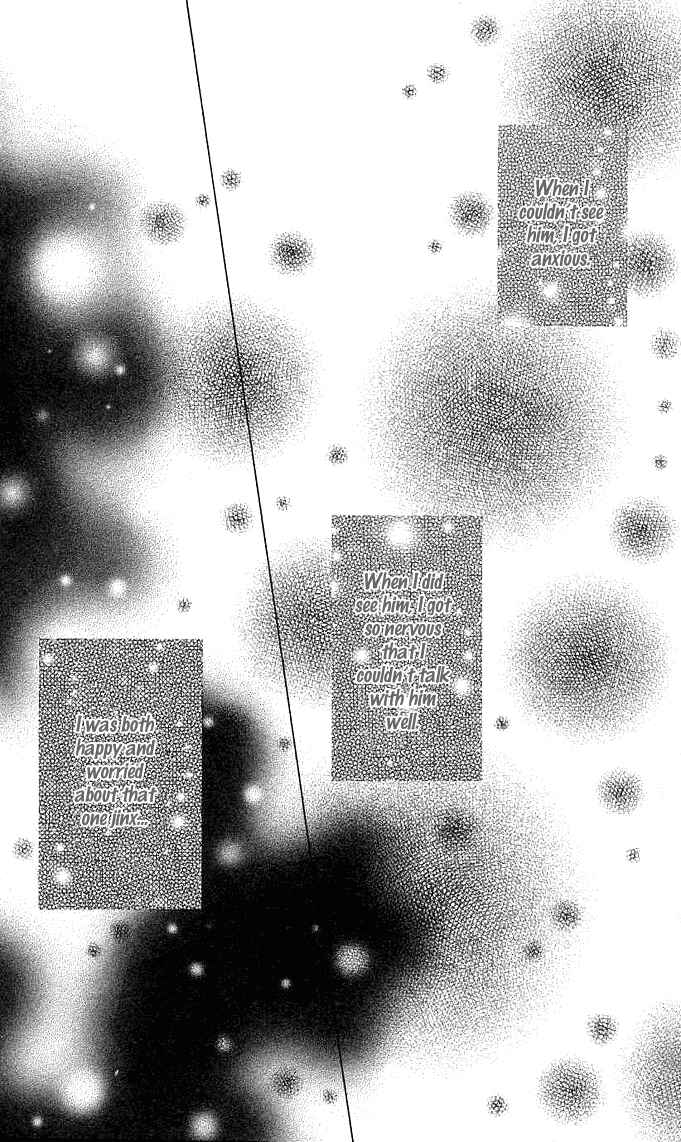 When I
couldn't see
him, I got
anxious.
When I did
see him, I got
so nervous
that I
couldn't talk
with him
well.
I was both
happy and
worried
about that
one jinx...